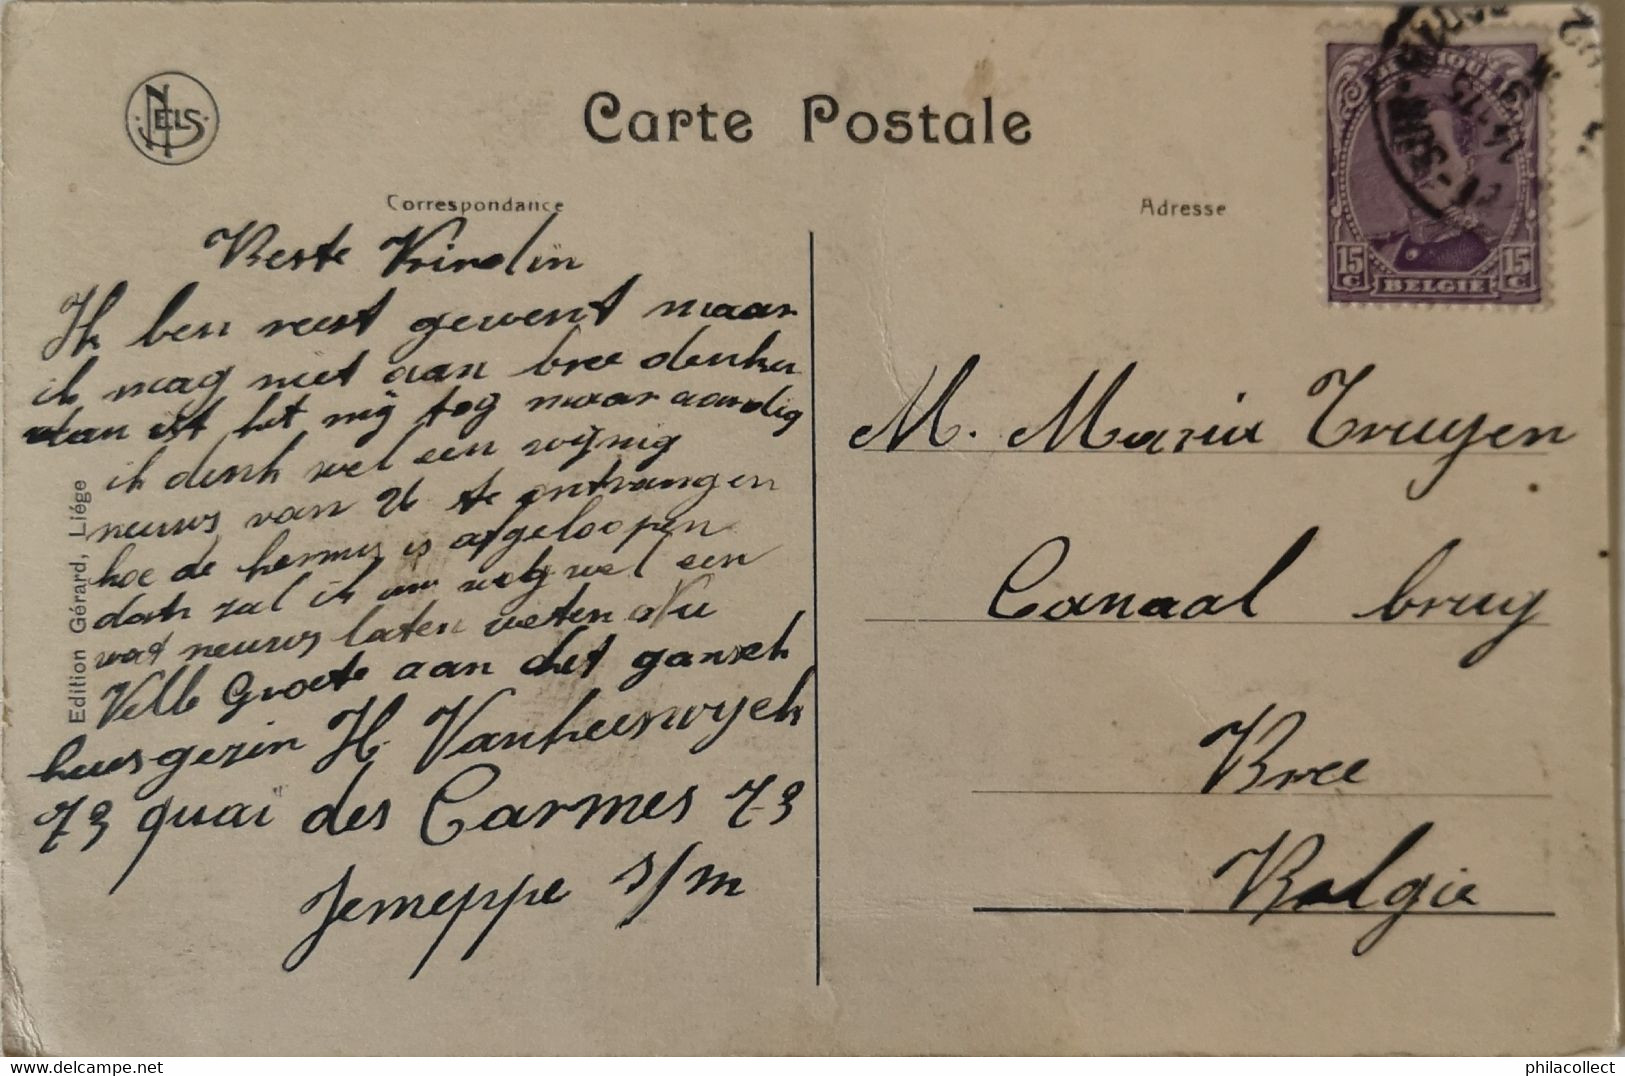 NELS
Carte Postale
Correspondance
Adresse
BELGIQUE
15 C
15 C
BELGIE
Edition Gérard, Liége
Beste Vrindin
Ik ben reest gewent maar
ik mag niet aan bree denken
dan ist het mij tog maar aardig
ik denk wel een wijnig
neuws van U te ontvangen
hoe de kermis is afgeloopen
dan zal ik uw wel een
wat neuws laten weten Nu
Velle Groete aan het gansch
huisgezin H Vanheuswych
73 quai des Carmes 73
Jemeppe s/m
M. Maria Truyen
Canaal brug
Bree
Belgie
philacollect
delcampe.net